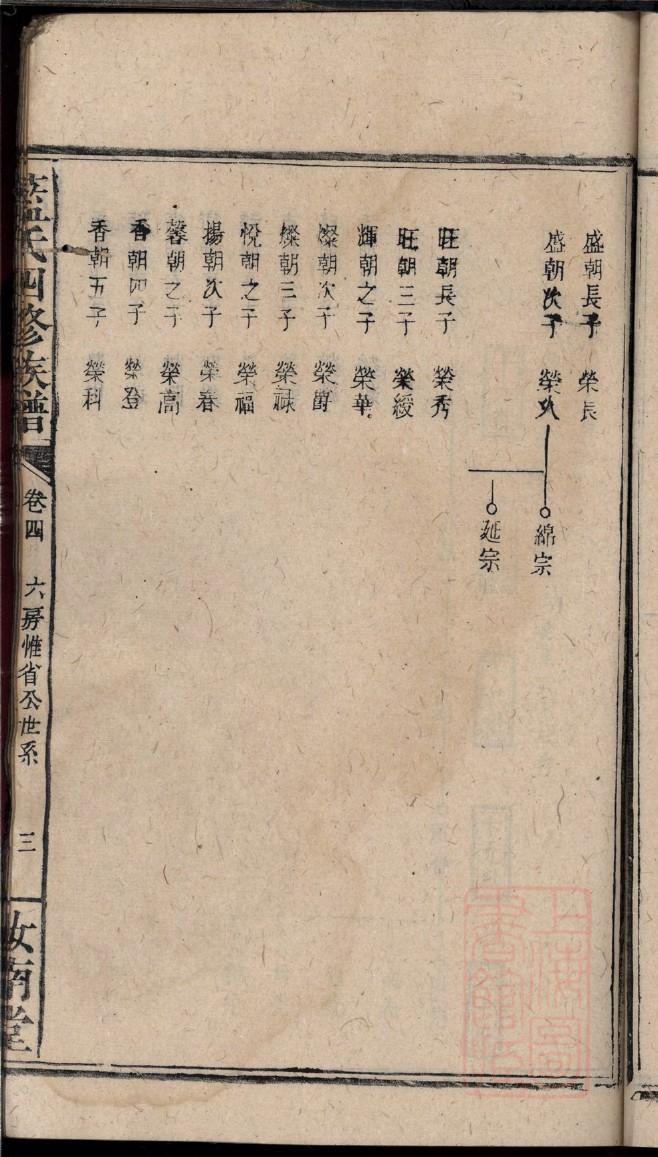 盛朝長子 榮長
盛朝次子 榮久
綿宗
延宗
旺朝長子 榮秀
旺朝三子 榮綬
輝朝之子 榮華
燦朝次子 榮爵
燦朝三子 榮祿
悅朝之子 榮福
揚朝次子 榮春
馨朝之子 榮高
香朝四子 榮登
香朝五子 榮科
藍氏四修族譜
卷四 六房惟省公世系 三
汝南堂